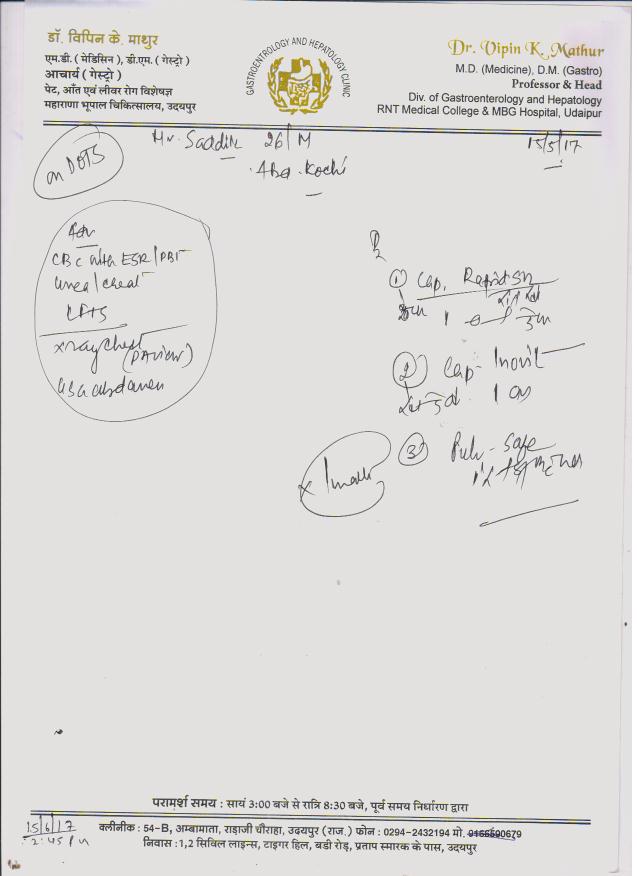 डॉ. विपिन के. माथुर
एम.डी. ( मेडिसिन ), डी.एम. ( गेस्ट्रो )
आचार्य ( गेस्ट्रो )
पेट, आँत एवं लीवर रोग विशेषज्ञ
महाराणा भूपाल चिकित्सालय, उदयपुर
GASTROENTROLOGY AND HEPATOLOGY CLINIC
Dr. Vipin K. Mathur
M.D. (Medicine), D.M. (Gastro)
Professor & Head
Div. of Gastroenterology and Hepatology
RNT Medical College & MBG Hospital, Udaipur
Mr. Saddik 26/M
15/5/17
on DOTS
Adv
CBC with ESR/PBF
Urea/Creat
LFTS
Xray Chest
(PA view)
USG abdomen
① Cap.
1
② Cap-
1 OD
③ safe
x 1 month
परामर्श समय : सायं 3:00 बजे से रात्रि 8:30 बजे, पूर्व समय निर्धारण द्वारा
15/6/17
2:45 PM
क्लीनीक : 54-B, अम्बामाता, राड़ाजी चौराहा, उदयपुर (राज.) फोन : 0294-2432194 मो. 9166590679
निवास : 1,2 सिविल लाइन्स, टाइगर हिल, बडी रोड़, प्रताप स्मारक के पास, उदयपुर